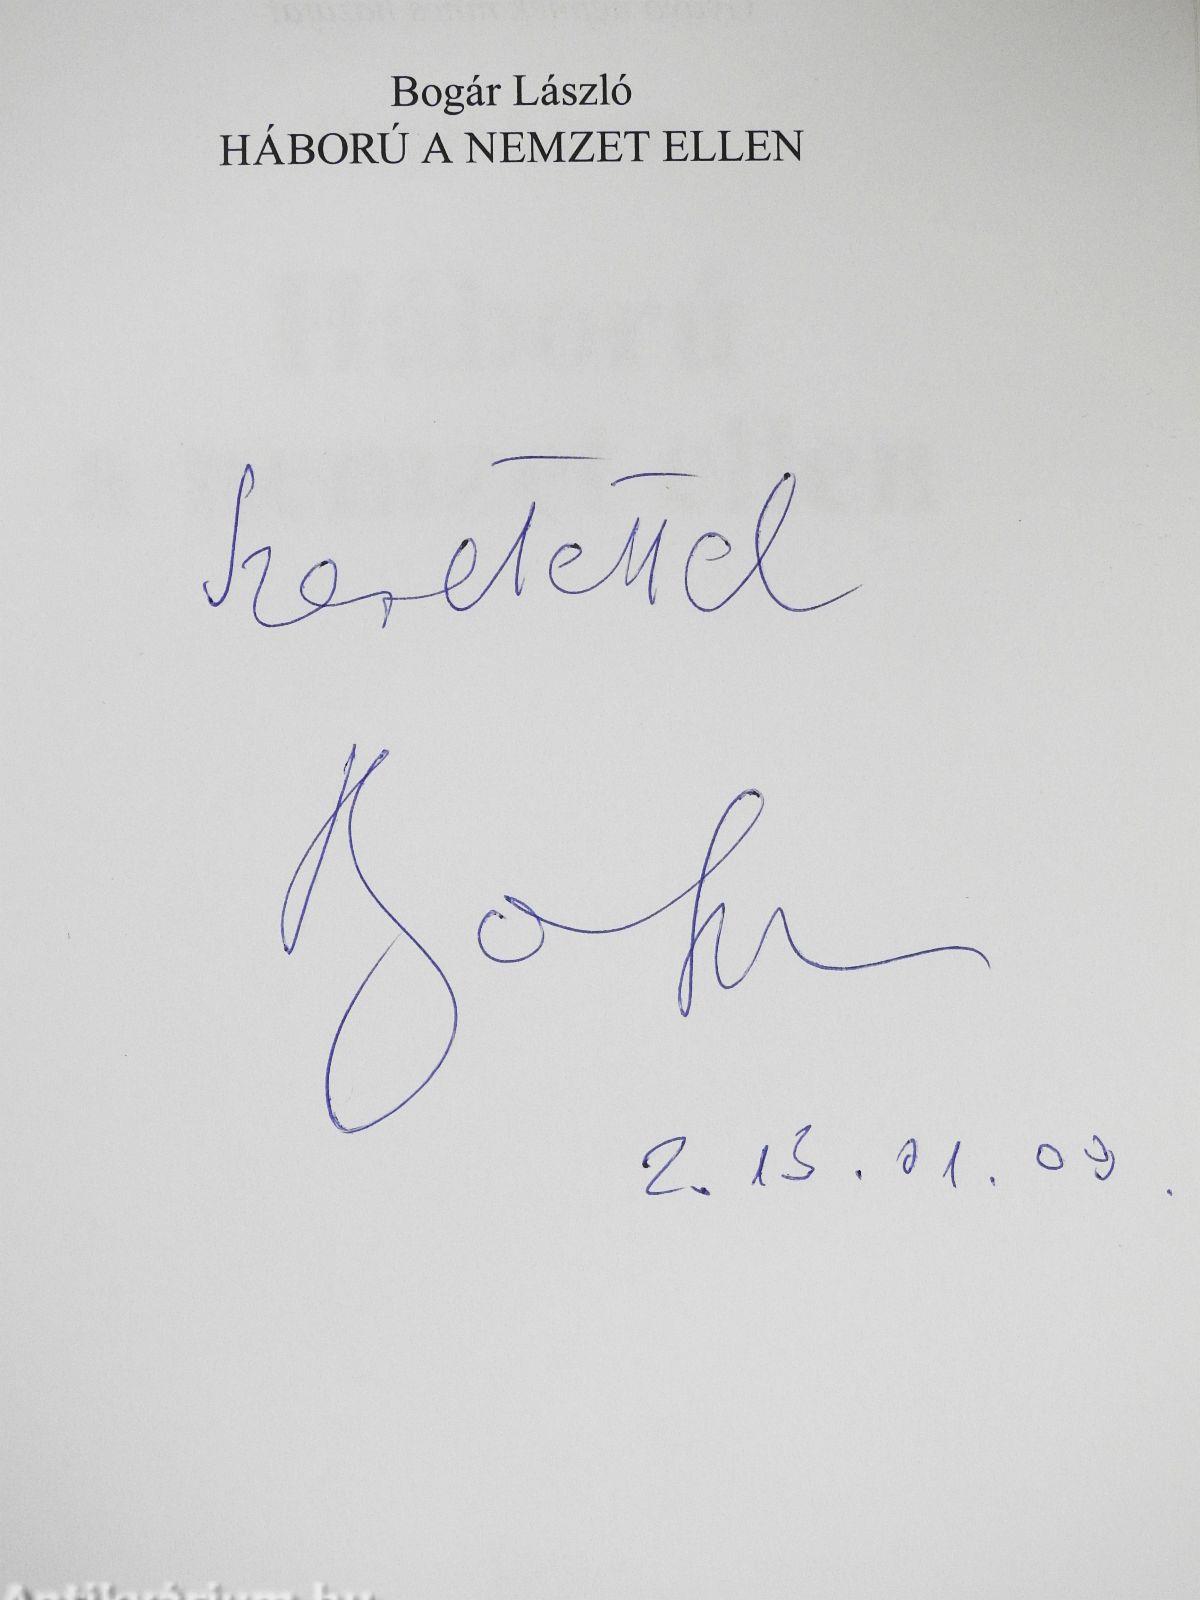 Bogár László
HÁBORÚ A NEMZET ELLEN
Szeretettel
2.13.01.09.
Antikvárium.hu